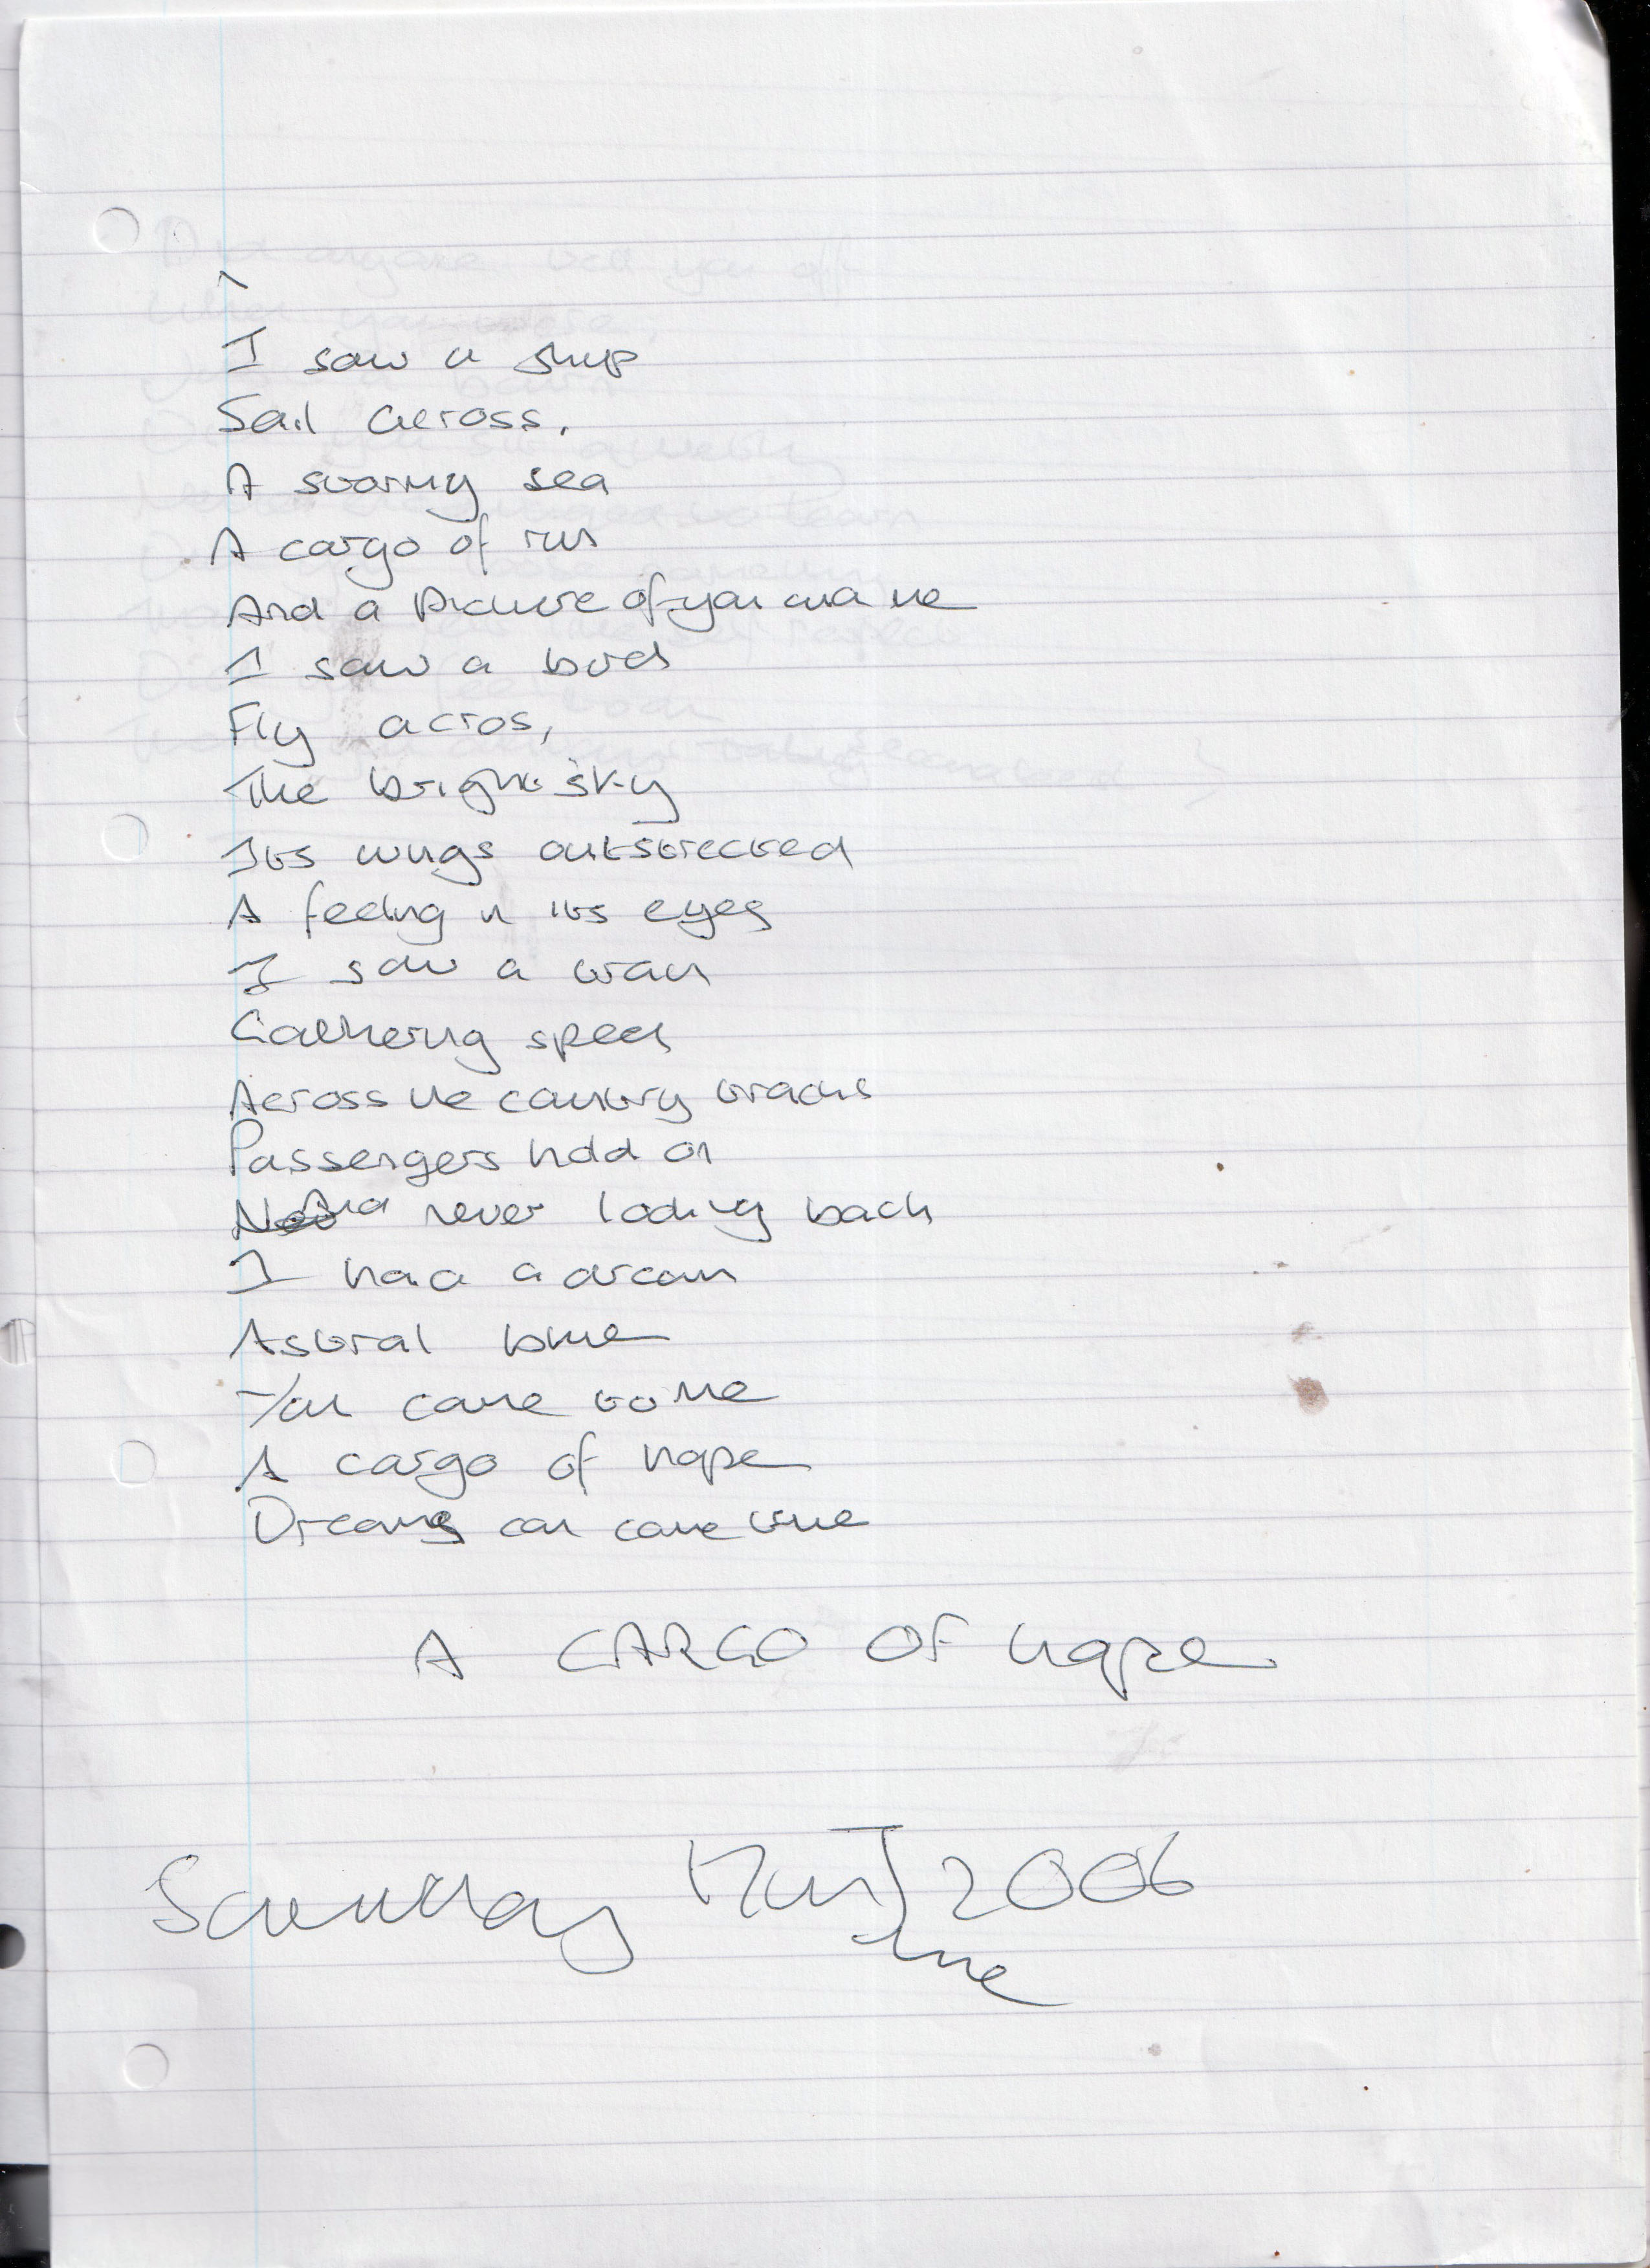 I saw a ship
Sail across,
A stormy sea
A cargo of
And a picture of you and me
I saw a bird
Fly acros,
The bright sky
Its wings outstretched
A feeling in its eyes
I saw a train
Gathering speed
Across the country tracks
Passengers hold on
And never looking back
I had a dream
Astral blue
You came to me
A cargo of hope
Dreams can come true
A CARGO OF hope
Saturday 17th June 2006